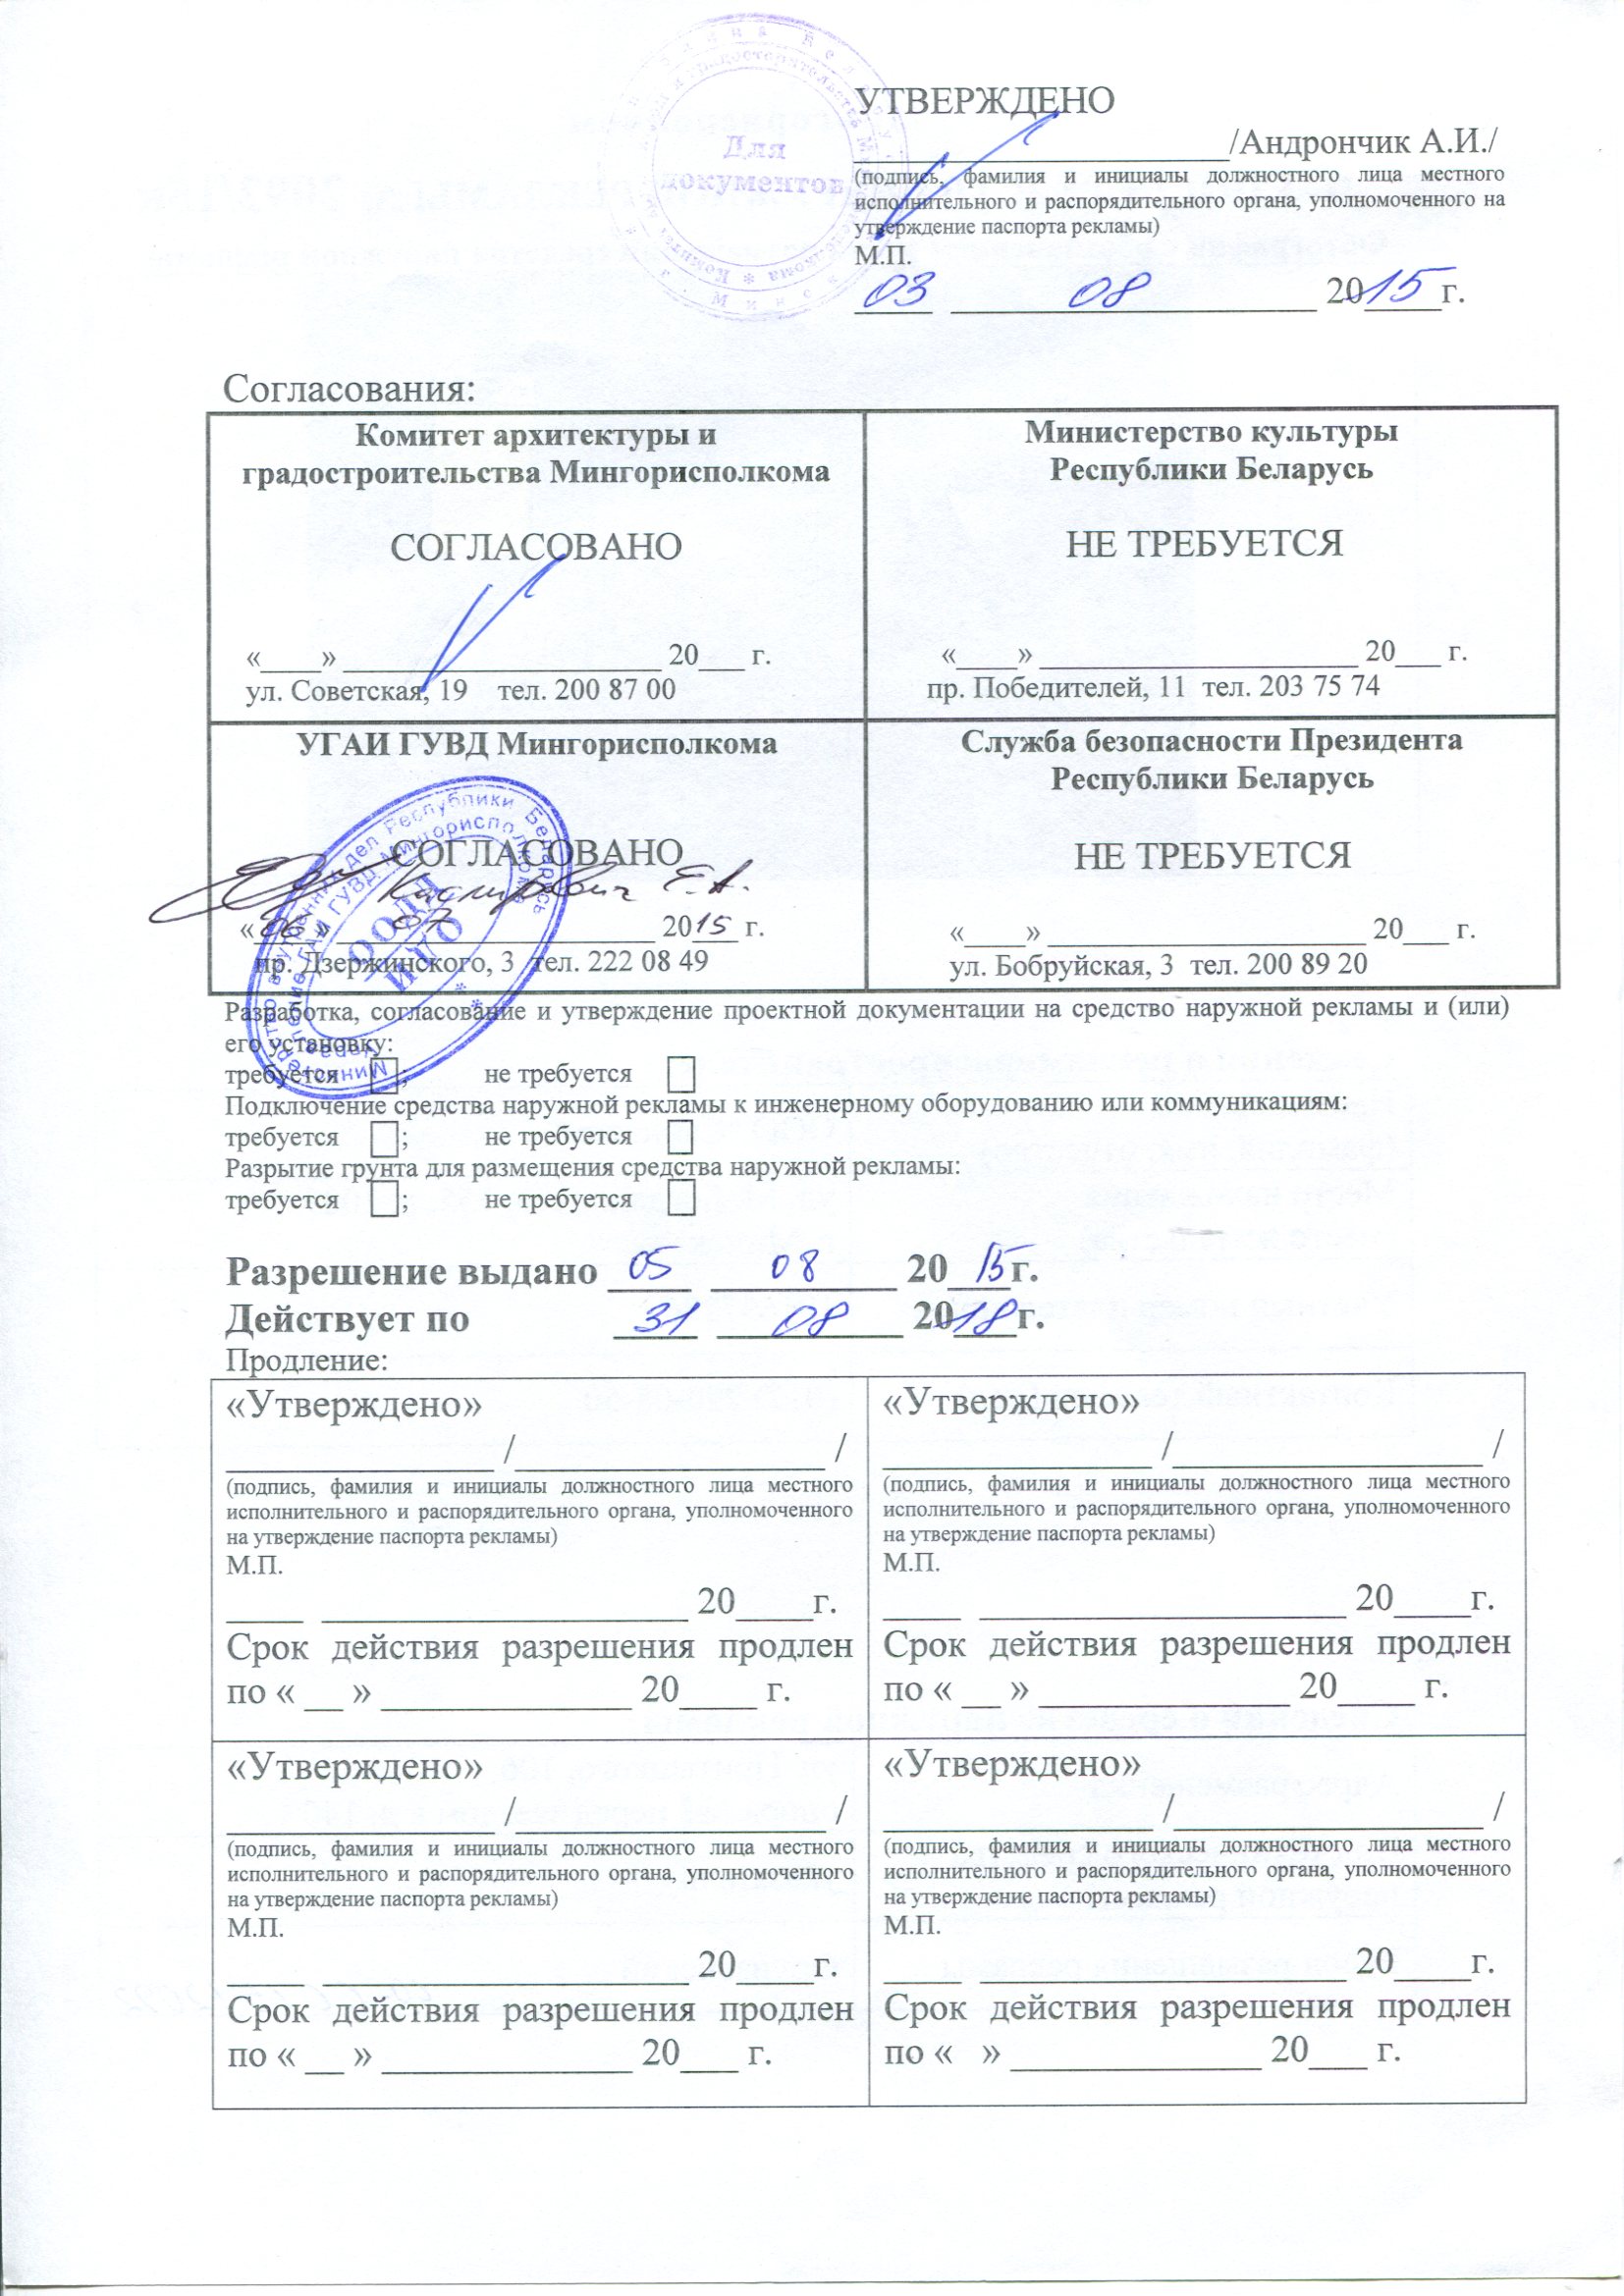 УТВЕРЖДЕНО
Для
документов
____________________/Андрончик А.И./
(подпись, фамилия и инициалы должностного лица местного
исполнительного и распорядительного органа, уполномоченного на
утверждение паспорта рекламы)
М.П.
03 08 2015г.
Согласования:
Комитет архитектуры и
градостроительства Мингорисполкома
СОГЛАСОВАНО
«____» _____________________ 20___ г.
ул. Советская, 19 тел. 200 87 00
Министерство культуры
Республики Беларусь
НЕ ТРЕБУЕТСЯ
«____» _____________________ 20___ г.
пр. Победителей, 11 тел. 203 75 74
УГАИ ГУВД Мингорисполкома
СОГЛАСОВАНО
Е.А.
«06» 07 2015 г.
пр. Дзержинского, 3 тел. 222 08 49
Служба безопасности Президента
Республики Беларусь
НЕ ТРЕБУЕТСЯ
«____» _____________________ 20___ г.
ул. Бобруйская, 3 тел. 200 89 20
Разработка, согласование и утверждение проектной документации на средство наружной рекламы и (или)
его установку:
требуется ; не требуется
Подключение средства наружной рекламы к инженерному оборудованию или коммуникациям:
требуется ; не требуется
Разрытие грунта для размещения средства наружной рекламы:
требуется ; не требуется
Разрешение выдано 05 08 2015г.
Действует по 31 08 2018г.
Продление:
«Утверждено»
______________ /________________ /
(подпись, фамилия и инициалы должностного лица местного
исполнительного и распорядительного органа, уполномоченного
на утверждение паспорта рекламы)
М.П.
____ ___________________ 20____г.
Срок действия разрешения продлен
по « __ » _____________ 20____ г.
«Утверждено»
______________ /________________ /
(подпись, фамилия и инициалы должностного лица местного
исполнительного и распорядительного органа, уполномоченного
на утверждение паспорта рекламы)
М.П.
____ ___________________ 20____г.
Срок действия разрешения продлен
по « __ » _____________ 20____ г.
«Утверждено»
______________ /________________ /
(подпись, фамилия и инициалы должностного лица местного
исполнительного и распорядительного органа, уполномоченного
на утверждение паспорта рекламы)
М.П.
____ ___________________ 20____г.
Срок действия разрешения продлен
по « __ » _____________ 20___ г.
«Утверждено»
______________ /________________ /
(подпись, фамилия и инициалы должностного лица местного
исполнительного и распорядительного органа, уполномоченного
на утверждение паспорта рекламы)
М.П.
____ ___________________ 20____г.
Срок действия разрешения продлен
по « » _____________ 20___ г.